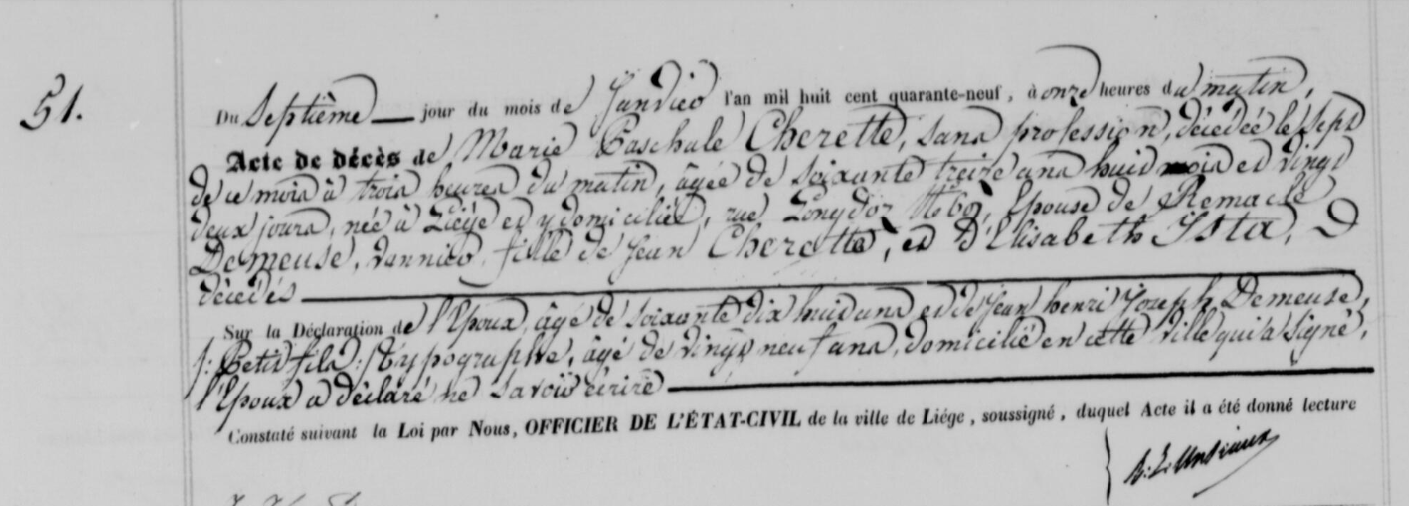 51.
Du Septième jour du mois de Janvier l'an mil huit cent quarante-neuf, à onze heures du matin,
Acte de décès de Marie Paschale Cherette, sans profession, décédée le sept
de ce mois à trois heures du matin, âgée de soixante treize ans huit mois et vingt
deux jours, née à Liége et y domiciliée, rue Longdoz Epouse de Remacle
Demeuse, vannier, fille de Jean Cherette, et d'Elisabeth Ista,
décédés
Sur la Déclaration de l'Epoux, âgé de soixante dix huit ans et de Jean henri Joseph Demeuse,
/: Petit fils :/ typographe, âgé de vingt neuf ans, domicilié en cette ville qui a signé,
l'Epoux a déclaré ne savoir écrire
Constaté suivant la Loi par Nous, OFFICIER DE L'ÉTAT-CIVIL de la ville de Liége, soussigné, duquel Acte il a été donné lecture